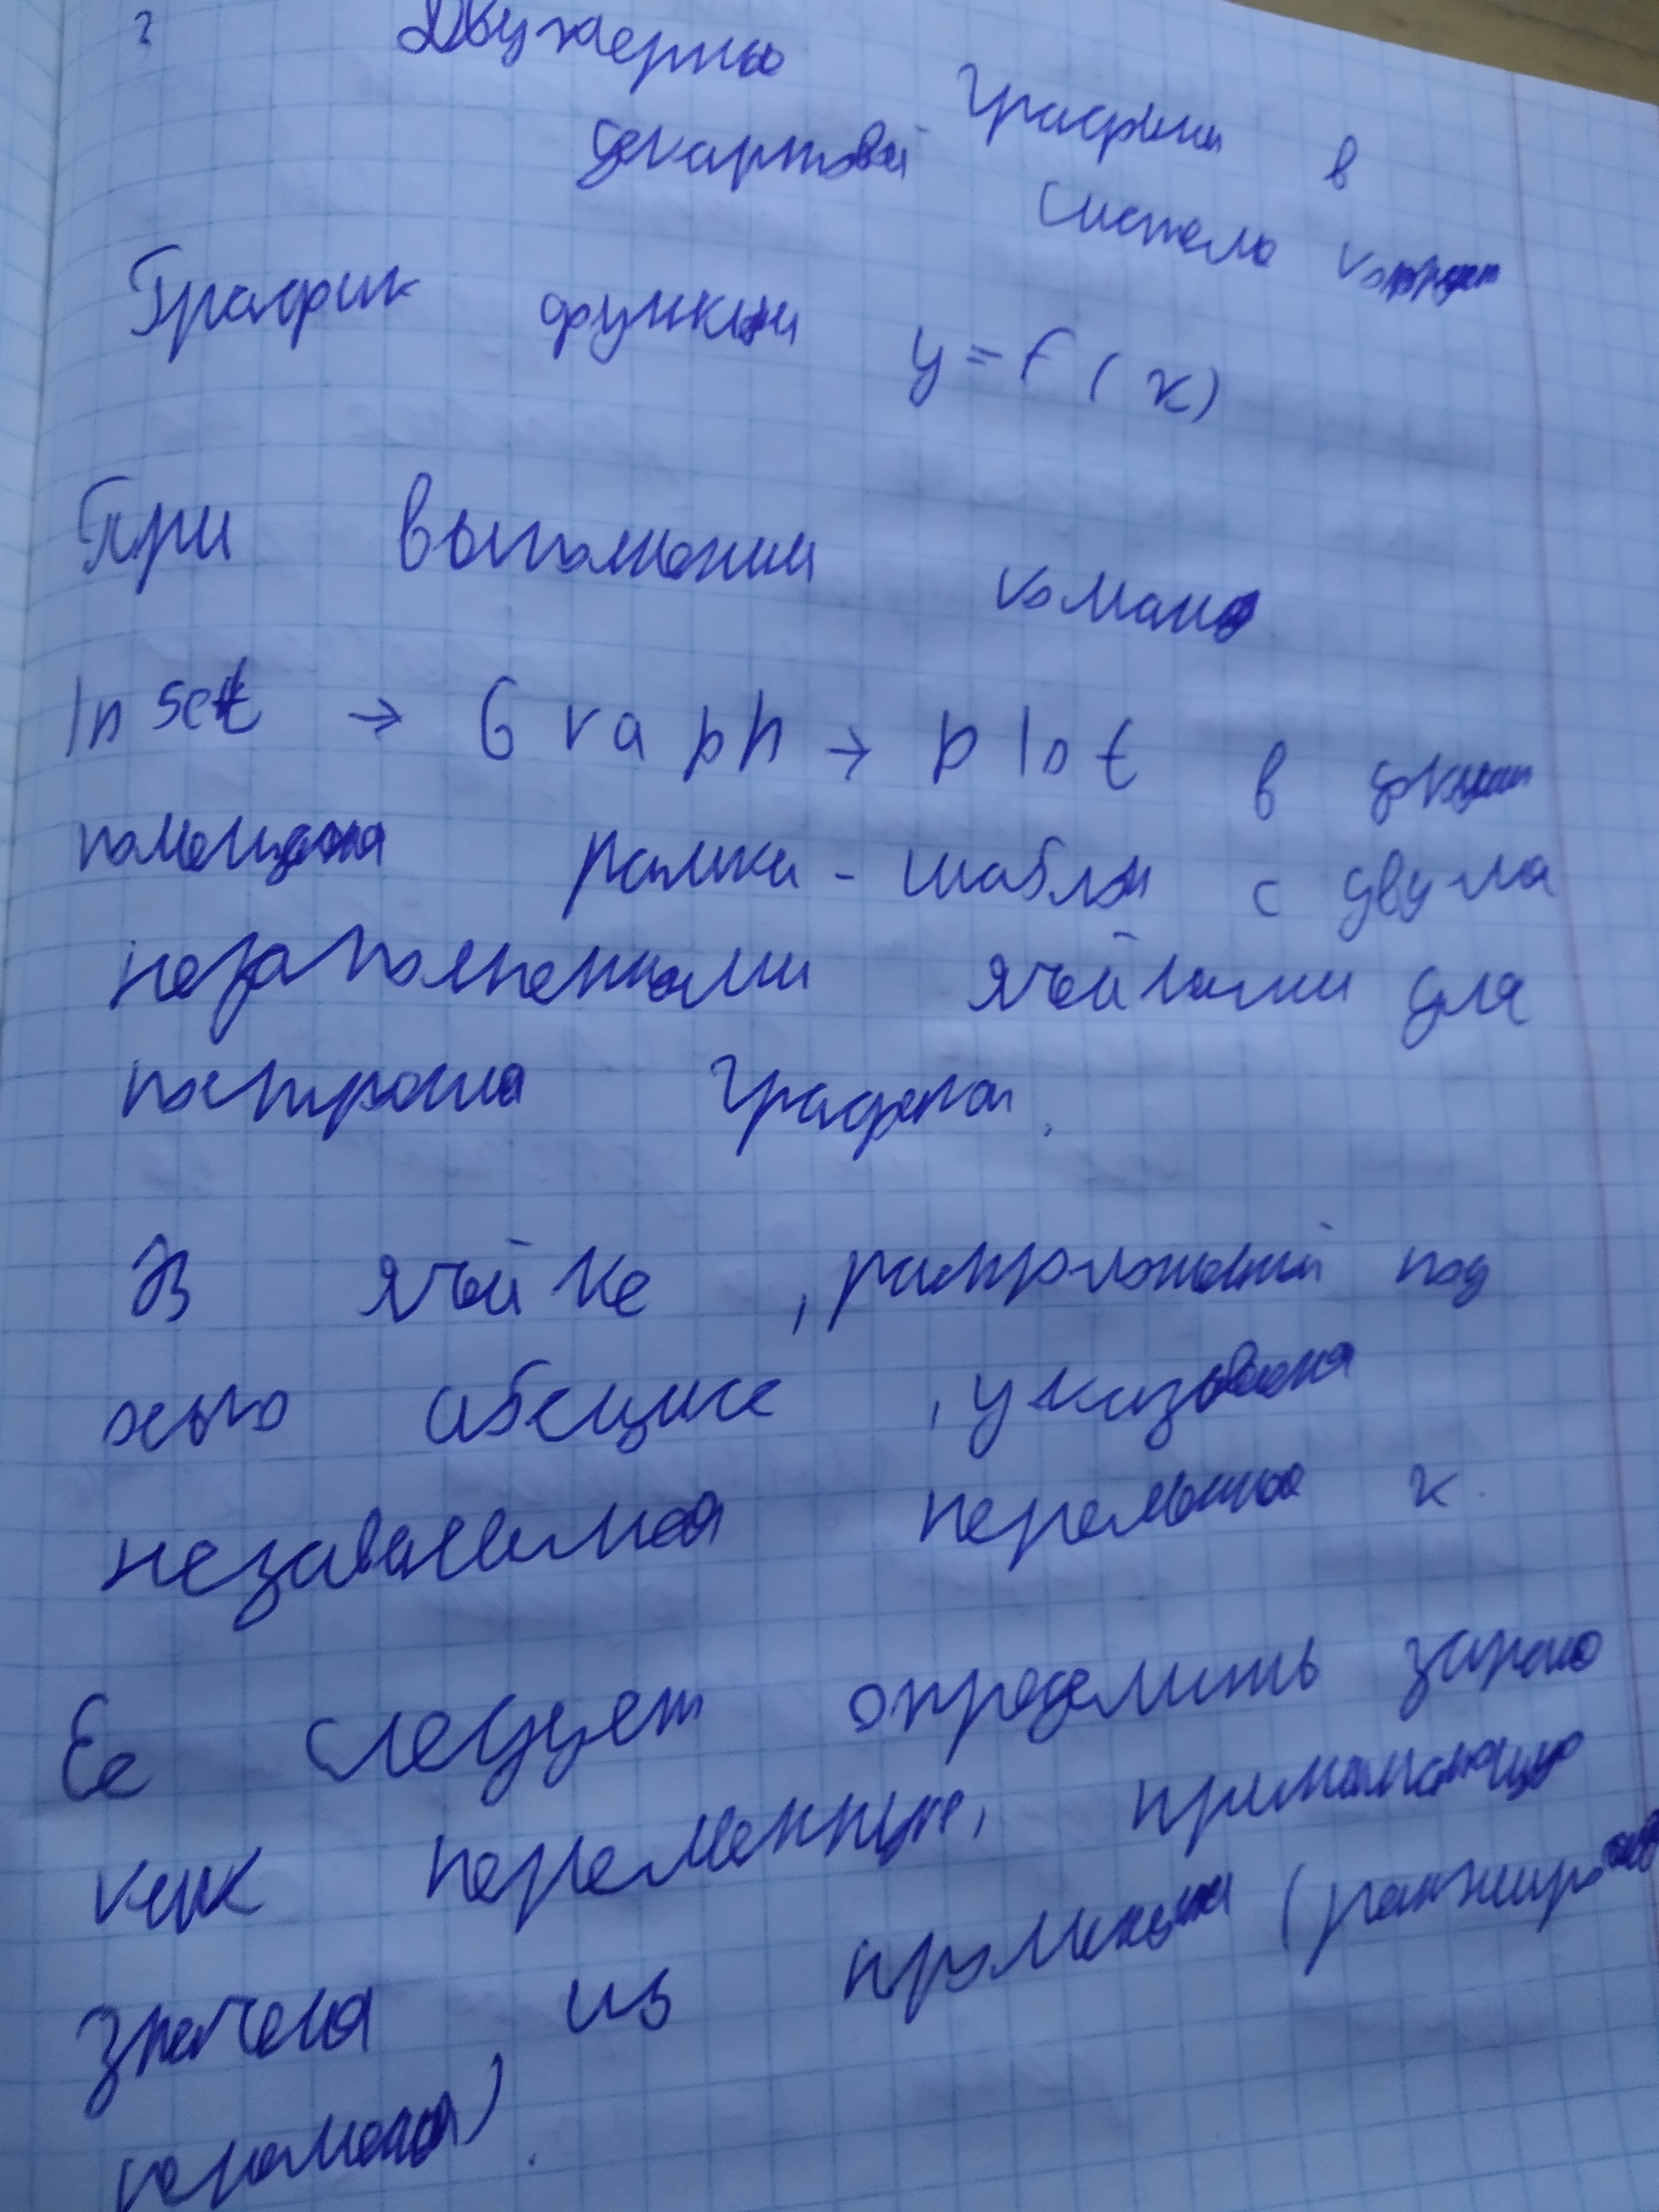 ?
Двумерные графики в
декартовой системе координат
График функции y = f(x)
При выполнении команд
Inset → Graph → plot в документ
помещается рамка - шаблон с двумя
незаполненными ячейками для
построения графика.
В ячейке, расположенной под
осью абсцисс, указывается
независимая переменная x.
Ее следует определить заранее
как переменную, принимающую
значения из промежутка (ранжированная